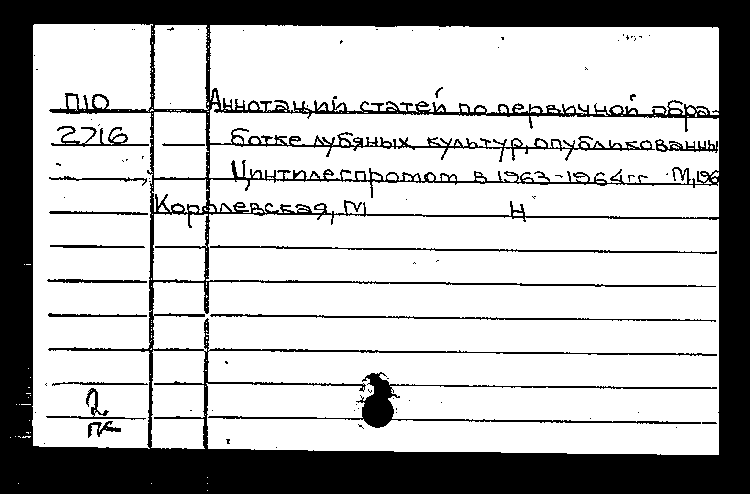 П10
2716
Аннотаций статей по первичной обра-
ботке лубяных культур, опубликованны
Цинтилегпромом в 1963-1964гг. М, 196
Королевская, М Н
2.
ПК